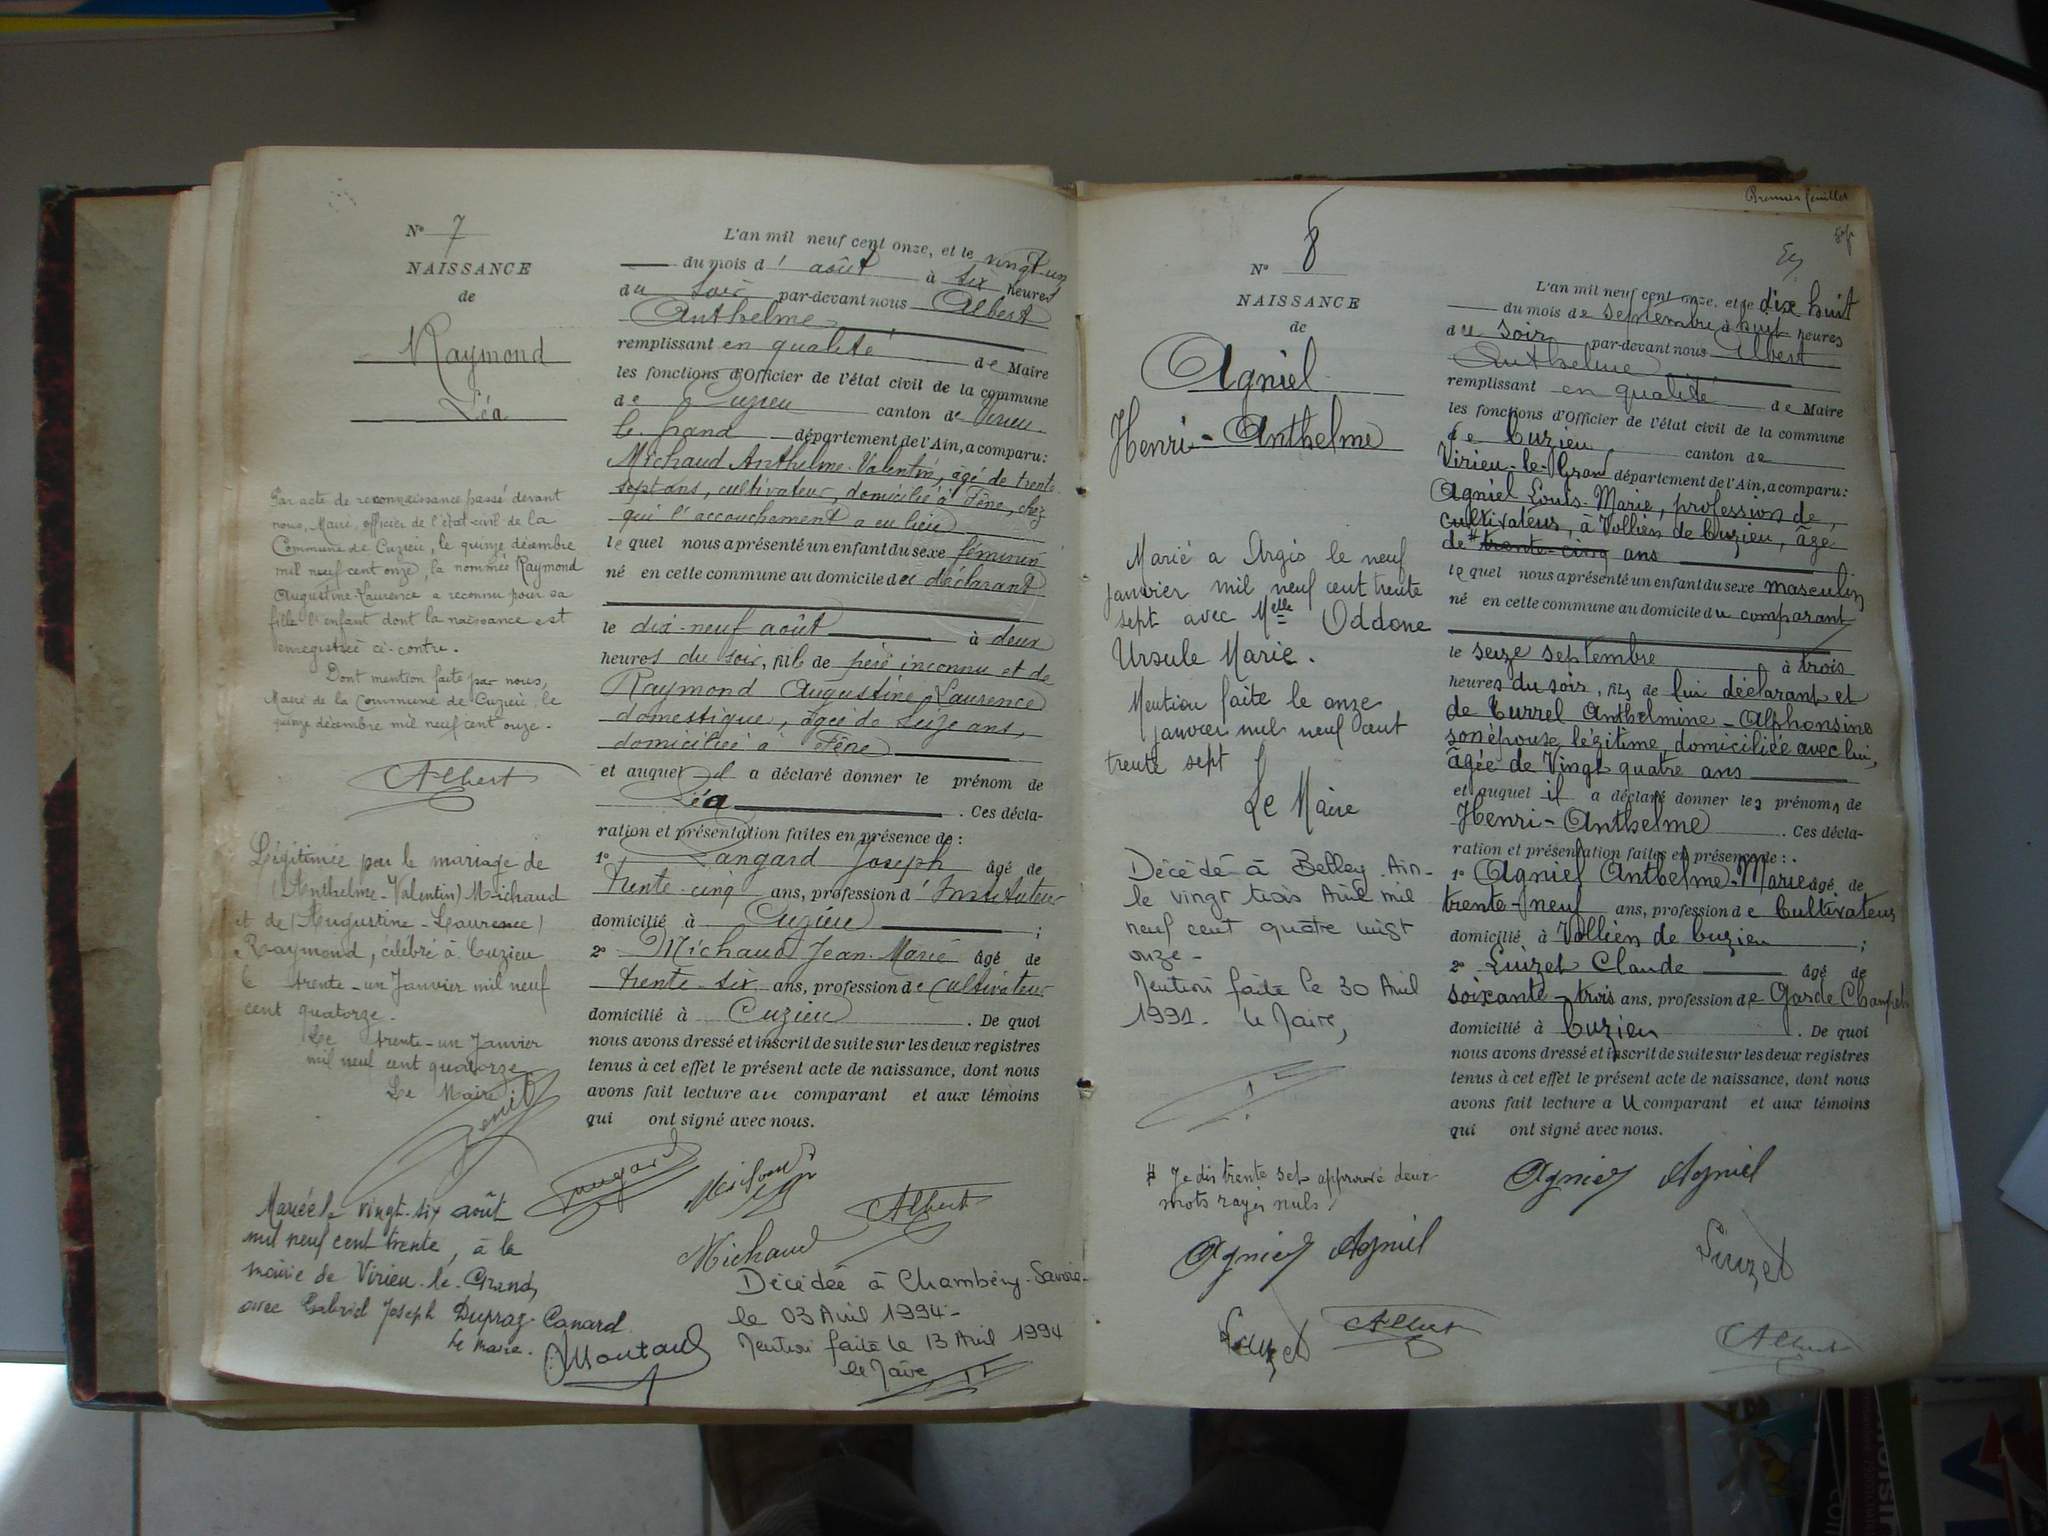 N° 7
NAISSANCE
de
Raymond
Léa
Par acte de reconnaissance passé devant
nous, Maire, officier de l'état-civil de la
Commune de Cuzieu, le quinze décembre
mil neuf cent onze, la nommée Raymond
Augustine-Laurence a reconnu pour sa
fille l'enfant dont la naissance est
enregistrée ci-contre.
Dont mention faite par nous,
Maire de la Commune de Cuzieu, le
quinze décembre mil neuf cent onze.
Albert
Légitimée par le mariage de
(Anthelme-Valentin) Michaud
et de (Augustine-Laurence)
Raymond, célébré à Cuzieu
le trente-un Janvier mil neuf
cent quatorze.
Le trente-un Janvier
mil neuf cent quatorze
Le Maire
Mariée le vingt-six août
mil neuf cent trente, à la
mairie de Virieu-le-Grand
avec Gabriel Joseph Dupraz-Canard
Le Maire.
L'an mil neuf cent onze, et le vingt-un
du mois d'août à six heures
du soir par-devant nous Albert
Anthelme
remplissant en qualité de Maire
les fonctions d'Officier de l'état civil de la commune
de Cuzieu canton de Virieu
le grand département de l'Ain, a comparu:
Michaud Anthelme-Valentin, âgé de trente
sept ans, cultivateur, domicilié à Fène, chez
qui l'accouchement a eu lieu
lequel nous a présenté un enfant du sexe féminin
né en cette commune au domicile du déclarant
le dix-neuf août à deux
heures du soir, fille de père inconnu et de
Raymond Augustine Laurence
domestique, âgée de seize ans,
domiciliée à Fène
et auquel il a déclaré donner le prénom de
Léa. Ces décla-
ration et présentation faites en présence de:
1° Langard Joseph âgé de
trente-cinq ans, profession d'Instituteur
domicilié à Cuzieu;
2° Michaud Jean-Marie âgé de
trente-six ans, profession de cultivateur
domicilié à Cuzieu. De quoi
nous avons dressé et inscrit de suite sur les deux registres
tenus à cet effet le présent acte de naissance, dont nous
avons fait lecture au comparant et aux témoins
qui ont signé avec nous.
Langard Michaud
Albert
Michaud
Décédée à Chambéry-Savoie-
le 03 Avril 1994-
Mention faite le 13 Avril 1994
le Maire
Premier feuillet
N° 8
NAISSANCE
de
Agniel
Henri-Anthelme
Marié à Argis le neuf
janvier mil neuf cent trente
sept avec Melle Oddone
Ursule Marie.
Mention faite le onze
janvier mil neuf cent
trente sept
Le Maire
Décédé à Belley-Ain-
le vingt trois Avril mil
neuf cent quatre vingt
onze-
Mention faite le 30 Avril
1991. le Maire,
# Je dis trente sept approuvé deux
mots rayés nuls
Agniel Agniel
Luizet Albert
L'an mil neuf cent onze, et le dix huit
du mois de septembre à huit heures
du soir par-devant nous Albert
Anthelme
remplissant en qualité de Maire
les fonctions d'Officier de l'état civil de la commune
de Cuzieu canton de
Virieu-le-Grand département de l'Ain, a comparu:
Agniel Louis-Marie, profession de,
cultivateur, à Vollien de Cuzieu, âgé
de # trente-cinq ans
lequel nous a présenté un enfant du sexe masculin
né en cette commune au domicile du comparant
le seize septembre à trois
heures du soir, fils de lui déclarant et
de Curret Anthelmine-Alphonsine
son épouse légitime, domiciliée avec lui,
âgée de Vingt quatre ans
et auquel il a déclaré donner les prénoms de
Henri-Anthelme. Ces décla-
ration et présentation faites en présence de:
1° Agniel Anthelme-Marie âgé de
trente-neuf ans, profession de Cultivateur
domicilié à Vollien de Cuzieu;
2° Luizet Claude âgé de
soixante-trois ans, profession de Garde Champêt
domicilié à Cuzieu. De quoi
nous avons dressé et inscrit de suite sur les deux registres
tenus à cet effet le présent acte de naissance, dont nous
avons fait lecture au comparant et aux témoins
qui ont signé avec nous.
Agniel Agniel
Luizet
Albert